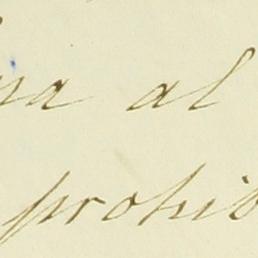 al
prohib